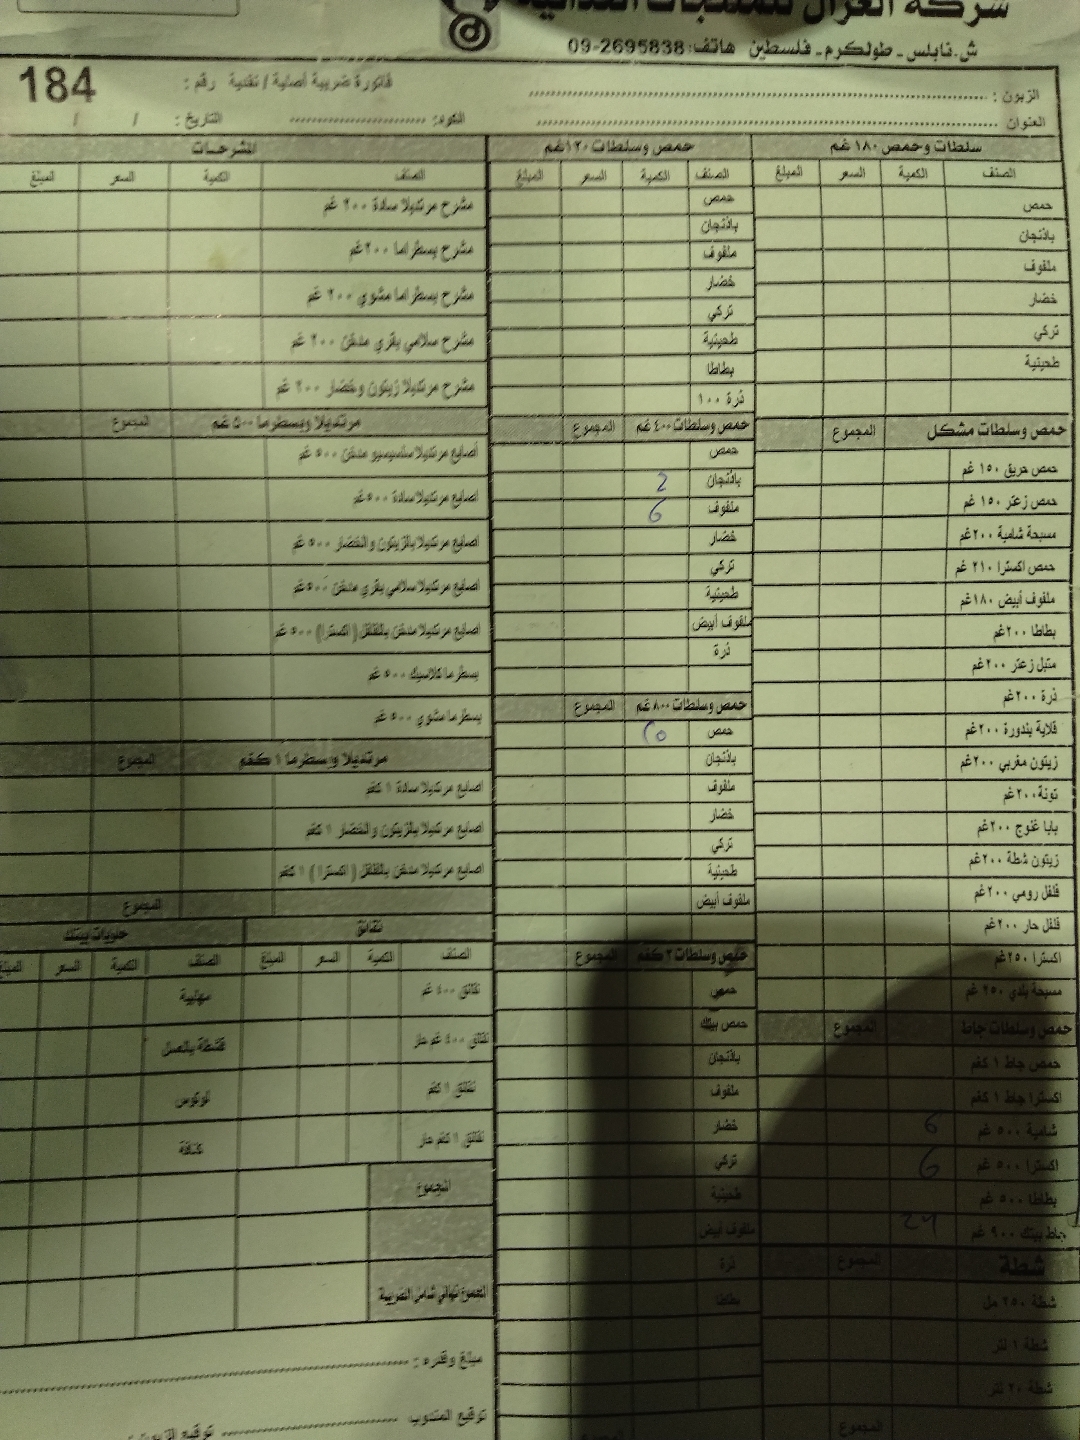 شركة الغزال للمنتجات الغذائية
ش.نابلس - طولكرم - فلسطين هاتف: 2695838-09
الزبون :
فاتورة ضريبية أصلية / نقدية رقم : 184
العنوان
الكود:
التاريخ : / /
سلطات وحمص ١٨٠ غم
الصنف الكمية السعر المبلغ
حمص
باذنجان
ملفوف
خضار
تركي
طحينية
حمص وسلطات مشكل المجموع
حمص حريق ١٥٠ غم
حمص زعتر ١٥٠ غم
مسبحة شامية ٢٠٠غم
حمص اكسترا ٢١٠ غم
ملفوف أبيض ١٨٠غم
بطاطا ٢٠٠غم
متبل زعتر ٢٠٠غم
ذرة ٢٠٠غم
قلاية بندورة ٢٠٠غم
زيتون مغربي ٢٠٠غم
تونة ٢٠٠غم
بابا غنوج ٢٠٠غم
زيتون شطة ٢٠٠غم
فلفل رومي ٢٠٠غم
فلفل حار ٢٠٠غم
اكسترا ٢٥٠غم
مسبحة بلدي ٢٥٠ غم
حمص وسلطات جاط المجموع
حمص جاط ١ كغم
اكسترا جاط ١ كغم
شامية ٥٠٠ غم 6
اكسترا ٥٠٠ غم 6
بطاطا ٥٠٠ غم
جاط بيتك ٩٠٠ غم 24
شطة المجموع
شطة ٢٥٠ مل
شطة ١ لتر
شطة ٢٠ لتر
المجموع
حمص وسلطات ١٢٠غم
الصنف الكمية السعر المبلغ
حمص
باذنجان
ملفوف
خضار
تركي
طحينية
بطاطا
ذرة ١٠٠
حمص وسلطات ٤٠٠ غم المجموع
حمص
باذنجان 2
ملفوف 6
خضار
تركي
طحينية
ملفوف أبيض
ذرة
حمص وسلطات ٨٠٠ غم المجموع
حمص 10
باذنجان
ملفوف
خضار
تركي
طحينية
ملفوف أبيض
حمص وسلطات ٢ كغم المجموع
حمص
حمص بيتك
باذنجان
ملفوف
خضار
تركي
طحينية
ملفوف أبيض
ذرة
بطاطا
المجموع
المشرحات
الصنف الكمية السعر المبلغ
مشرح مرتديلا سادة ٢٠٠ غم
مشرح بسطرما ٢٠٠غم
مشرح بسطرما مشوي ٢٠٠ غم
مشرح سلامي بقري مدخن ٢٠٠ غم
مشرح مرتديلا زيتون وخضار ٢٠٠ غم
مرتديلا وبسطرما ٥٠٠ غم المجموع
اصابع مرتديلا سلاسيسيو مدخن ٥٠٠ غم
اصابع مرتديلا سادة ٥٠٠غم
اصابع مرتديلا بالزيتون والخضار ٥٠٠ غم
اصابع مرتديلا سلامي بقري مدخن ٥٠٠غم
اصابع مرتديلا مدخن بالفلفل (اكسترا) ٥٠٠ غم
بسطرما كلاسيك ٥٠٠ غم
بسطرما مشوي ٥٠٠ غم
مرتديلا وبسطرما ١ كغم المجموع
اصابع مرتديلا سادة ١ كغم
اصابع مرتديلا بالزيتون والخضار ١ كغم
اصابع مرتديلا مدخن بالفلفل (اكسترا) ١ كغم
المجموع
نقانق
الصنف الكمية السعر المبلغ
نقانق ٤٠٠ غم
نقانق ٤٠٠ غم حار
نقانق ١ كغم
نقانق ١ كغم حار
المجموع
المجموع النهائي شامل الضريبة
حلويات بيتك
الصنف الكمية السعر المبلغ
مهلبية
قشطة بالعسل
لوتوس
كنافة
مبلغ وقدره :
توقيع المندوب
توقيع الزبون :